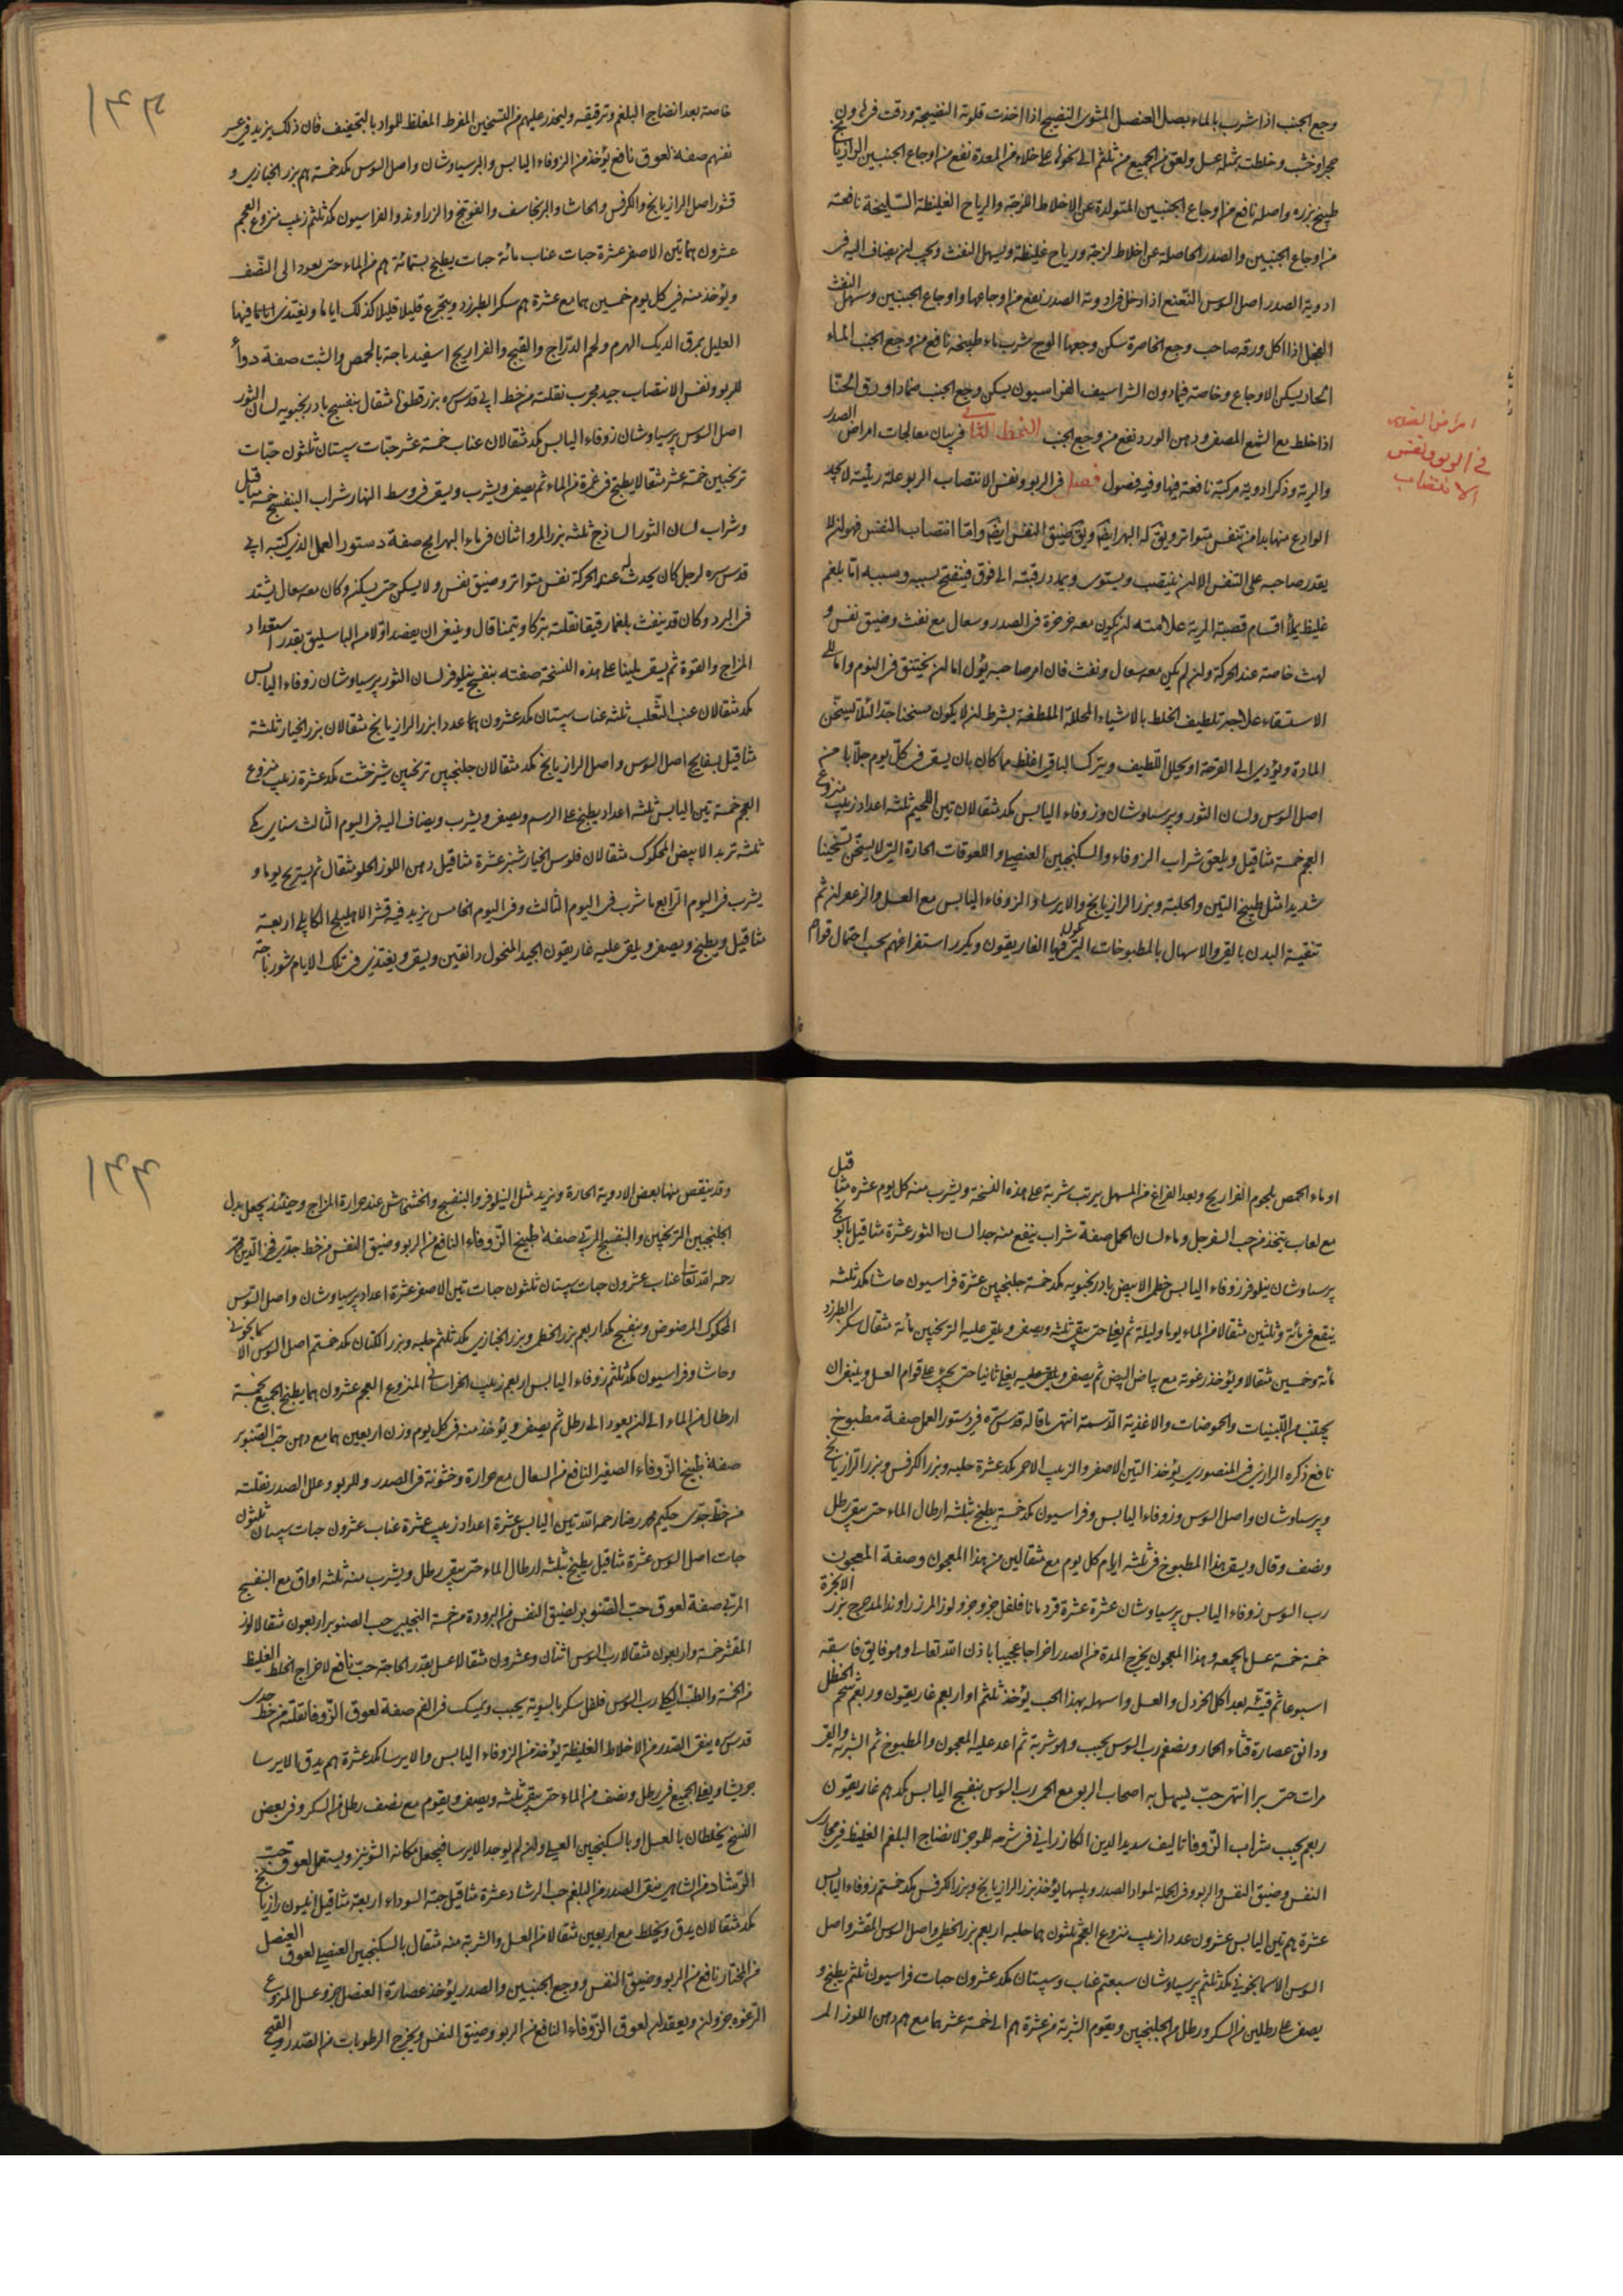 وجع الجنب اذا شرب بالماء بصل العنصل المشوى النضيج اذا اخذت قلوبه النضيجة ودقت فى هاون
حجر او خشب وخلطت بمثله عسل ولعق من الجميع من ثلثم الى نحوها على خلاء من المعدة نفع من اوجاع الجنبين الرازيانج
طبيخ بزره واصله نافع من اوجاع الجنبين المتولدة عن الاخلاط اللزجة والرياح الغليظة السليخة نافعة
من اوجاع الجنبين والصدر الحاصلة عن اخلاط لزجة ورياح غليظة ويسهل النفث ويجب ان يضاف اليه فى
ادوية الصدر اصل السوس النعنع اذا دخل فى ادوية الصدر نفع من اوجاعها واوجاع الجنبين وسهل النفث
الفجل اذا اكل ورقه صاحب وجع الخاصرة سكن وجعها الوج شرب ماء طبيخه نافع من وجع الجنب الماء
الحار يسكن الاوجاع وخاصة فيما دون الشراسيف الفراسيون يسكن وجع الجنب ضمادا ورق الحنا
اذا خلط مع الشمع المصفى ودهن الورد نفع من وجع الجنب النمط الثانى فى بيان معالجات امراض الصدر
والرية وذكر ادوية مركبة نافعة فيها وفيه فصول فصل فى الربو ونفس الانتصاب الربو علة رئية لا يجد
الوادع منها بدا من تنفس متواتر ويق له البهر ايضا ويق ضيق النفس ايضا واما انتصاب النفس فهو ان لا
يقدر صاحبه على التنفس الا ان ينتصب ويستوى ويمدد رقبته الى فوق فينفتح بسببه وسببه اما بلغم
غليظ يملأ اقسام قصبة الرية علامته ان يكون معه خرخرة فى الصدر وسعال مع نفث وضيق نفس و
لهث خاصة عند الحركة وان لم يكن معه سعال ونفث فان امر صاحبه يؤل اما ان يختنق فى النوم واما الى
الاستسقاء علاجه تلطيف الخلط بالاشياء المحللة الملطفة بشرط ان لا يكون مسخنا جدا لئلا تسخن
المادة ويؤدى الى القرحة او يحلل اللطيف ويترك الباقى اغلظ مما كان بان يسقى فى كل يوم جلابا من
اصل السوس ولسان الثور وپرسياوشان وزوفاء اليابس مكد مثقالان تين اللحيم ثلثه اعداد زبيب منزوع
العجم خمسة مثاقيل ويلعق شراب الزوفاء والسكنجبين العنصلى واللعوقات الحارة التى لا يسخن تسخينا
شديدا مثل طبيخ التين والحلبة وبزر الرازيانج والايرسا والزوفاء اليابس مع العسل والزعفران ثم
تنقية البدن بالقى والاسهال بالمطبوخات التى يكون فيها الغاريقون ويكرر استفراغهم بحسب احتمال قوام
امراض الصدر
فى الربو ونفس
الانتصاب
خاصة بعد انضاج البلغم وترقيقه وليحذر عليهم من التسخين المفرط المغلظ للمواد بالتجفيف فان ذلك يزيد فى عسر
نفثهم صفة لعوق نافع يؤخذ من الزوفاء اليابس والپرسياوشان واصل السوس مكد خمسة هم بزر الخبازى و
قشور اصل الرازيانج والكرفس والحاشا والبرنجاسف والفوتنج والزراوند والفراسيون مكد ثلثم زبيب منزوع العجم
عشرون هما تين الاصفر عشرة حبات عناب مائة حبات يطبخ بستمائة هم من الماء حتى يعود الى النصف
ويؤخذ منه فى كل يوم خمسين هما مع عشرة هم سكر الطبرزد ويتجرع قليلا قليلا كذلك اياما ويغتذى فيها
العليل بمرق الديك الهرم ولحم الدراج والقبج والفراريج اسفيدباجة بالحمص والشبت صفة دواء
للربو ونفس الانتصاب جيد مجرب نقلته من خط ابى قدس سره بزر قطونا مثقال بنفسج بادرنجبويه لسان الثور
اصل السوس پرسياوشان زوفاء اليابس مكد مثقالان عناب خمسة عشر حبات سپستان ثلثون حبات
ترنجبين خمسة عشر مثقالا يطبخ فى غمره من الماء ثم يصفى ويشرب ويسقى فى وسط النهار شراب البنفسج خمسة مثاقيل
وشراب لسان الثور الساذج ثلثه بزر المرو اثنان فى ماء البهرامج صفة دستور العمل الذى كتبه ابى
قدس سره لرجل كان يحدث له عند الحركة نفس متواتر وضيق نفس ولا يسكن حتى يسكن وكان معه سعال يشتد
فى البرد وكان قد ينفث بلغما رقيقا نقلته تبركا وتيمنا قال وينبغى ان يفصد اولا من الباسليق بقدر استعداد
المزاج والقوة ثم يسقى ملينا على هذه النسخة صفته بنفسج نيلوفر لسان الثور پرسياوشان زوفاء اليابس
مكد مثقالان عنب الثعلب ثلثه عناب سپستان مكد عشرون هما عددا بزر الرازيانج مثقالان بزر الخيار ثلثة
مثاقيل بسفايج اصل السوس واصل الرازيانج مكد مثقالان جلنجبين ترنجبين شيرخشت مكد عشرة زبيب منزوع
العجم خمسة تين اليابس ثلثه اعداد يطبخ على الرسم ويصفى ويشرب ويضاف اليه فى اليوم الثالث سناى مكى
ثلثه تربد الابيض المحكوك مثقالان فلوس الخيار شنبر عشرة مثاقيل دهن اللوز الحلو مثقال ثم يستريح يوما و
يشرب فى اليوم الرابع ما شرب فى اليوم الثالث وفى اليوم الخامس يزيد فيه قشر الاهليلج الكابلى اربعة
مثاقيل ويطبخ ويصفى ويلقى عليه غاريقون الجيد المنخول دانقين ويسقى ويغتذى فى تلك الايام شورباجة
او ماء الحمص بلحوم الفراريج وبعد الفراغ من المسهل يرتب شربة على هذه النسخة ويشرب منه كل يوم عشره مثاقيل
مع لعاب يتخذ من حب السفرجل وماء لسان الحمل صفة شراب ينفع منه جدا لسان الثور عشرة مثاقيل بابونج
پرسياوشان نيلوفر زوفاء اليابس خطمى الابيض بادرنجبويه مكد خمسة جلنجبين عشرة فراسيون حاشا مكد ثلثه
ينقع فى مائة وثلثين مثقالا من الماء يوما وليلة ثم يغلى حتى يبقى ثلثه ويصفى ويلقى عليه الترنجبين مائة مثقال سكر الطبرزد
مائة وخمسين مثقالا ويؤخذ رغوته مع بياض البيض ثم يصفى ويلقى عليه يغلى ثانيا حتى يجئ على قوام العسل وينبغى ان
يجتنب من اللبنيات والحموضات والاغذية الدسمة انتهى ما قاله قدس سره فى دستور العمل صفة مطبوخ
نافع ذكره الرازى فى المنصورى يؤخذ التين الاصفر والزبيب الاحمر مكد عشرة حلبه وبزر الكرفس وبزر الرازيانج
وپرسياوشان واصل السوس وزوفاء اليابس وفراسيون مكد خمسة يطبخ بثلثه ارطال الماء حتى يبقى رطل
ونصف وقال ويسقى هذا المطبوخ فى ثلثه ايام كل يوم مع مثقالين من هذا المعجون وصفة المعجون
رب السوس زوفاء اليابس پرسياوشان عشرة عشرة قردمانا فلفل جزو جزو لوز المر زراوند المدحرج بزر الانجرة
خمسة خمسة عسل يجمعه وهذا المعجون يخرج المدة من الصدر اخراجا عجيبا باذن الله تعالى وهو فايق فاسقه
اسبوعا ثم قيئه بعد اكل الخردل والعسل واسهله بهذا الحب يؤخذ ثلثم او اربعم غاريقون وربعم شحم الحنظل
ودانق عصارة قثاء الحمار ونصفم رب السوس يحبب وهو شربة ثم اعد عليه المعجون والمطبوخ ثم الشربة والقى
مرات حتى يبرا انتهى حب ليسهل به اصحاب الربو مع الحمى رب السوس بنفسج اليابس مكد هم غاريقون
ربعم يحبب شراب الزوفا تاليف سديد الدين الكازرانى فى شرحه للموجز لانضاج البلغم الغليظ فى مجارى
النفس وضيق النفس والربو وفى الجملة لمواد الصدر ويلينها يؤخذ بزر الرازيانج وبزر الكرفس مكد خمستم زوفاء اليابس
عشرة هم تين اليابس عشرون عددا زبيب منزوع العجم ثلثون هما حلبه اربعم بزر الخطمى واصل السوس المقشر واصل
السوس الاسمانجونى مكد ثلثم پرسياوشان سبعتم عناب وسپستان مكد عشرون حبات فراسيون ثلثم يطبخ و
يصفى على رطلين من السكر ورطل من الجلنجبين ويقوم الشربة من عشرة هم الى خمسة عشر هما مع هم دهن اللوز المر
وقد ينقص منها بعض الادوية الحارة ويزيد مثل النيلوفر والبنفسج والخشخاش عند حرارة المزاج وحينئذ يجعل بدل
الجلنجبين الترنجبين والبنفسج المربى صفة طبيخ الزوفاء النافع من الربو وضيق النفس من خط جدى فخر الدين محمد
رحمه الله تعالى عناب عشرون حبات سپستان ثلثون حبات تين الاصفر عشرة اعداد پرسياوشان واصل السوس
المحكوك المرضوض وبنفسج مكد اربعم بزر الخطمى وبزر الخبازى مكد ثلثم حلبه وبزر الكتان مكد خمستم اصل السوس الاسمانجونى
وحاشا وفراسيون مكد ثلثم زوفاء اليابس اربعم زبيب الخراسانى المنزوع العجم عشرون هما يطبخ الجميع بخمسة
ارطال من الماء الى ان يعود الى رطل ثم يصفى ويؤخذ منه فى كل يوم وزن اربعين هما مع دهن حب الصنوبر
صفة طبيخ الزوفاء الصغير النافع من السعال مع حرارة وخشونة فى الصدر وللربو وعلل الصدر نقلته
من خط جدى حكيم محمد رضا رحمه الله تين اليابس عشرة اعداد زبيب عشرة عناب عشرون حبات سپستان ثلثون
حبات اصل السوس عشرة مثاقيل يطبخ بثلثه ارطال الماء حتى يبقى رطل ويشرب منه ثلثه اواق مع البنفسج
المربى صفة لعوق حب الصنوبر لضيق النفس من البرودة من خمسة النجيبى حب الصنوبر اربعون مثقالا لوز
المقشر خمسة واربعون مثقالا رب السوس اثنان وعشرون مثقالا عسل بقدر الحاجة حب نافع لاخراج الخلط الغليظ
من الخمسة والطب الكيلى رب السوس فلفل سكر بالسوية يحبب ويمسك فى الفم صفة لعوق الزوفا نقلته من خط جدى
قدس سره ينقى الصدر من الاخلاط الغليظة يؤخذ من الزوفاء اليابس والايرسا مكد عشرة هم يدق الايرسا
جريشا ويغلى الجميع فى رطل ونصف من الماء حتى يبقى ثلثه ويصفى ويقوم مع نصف رطل من السكر وفى بعض
النسخ يخلطان بالعسل او بالسكنجبين العسلى وان لم يوجد الايرسا فيجعل مكانه الشونيز ويستعمل لعوق حب
الرشاد من الشاهى ينقى الصدر من البلغم حب الرشاد عشرة مثاقيل حبة السوداء اربعة مثاقيل انيسون رازيانج
مكد مثقالان يدق ويخلط مع اربعين مثقالا من العسل والشربة منه مثقال بالسكنجبين العنصلى لعوق العنصل
من المختار نافع من الربو وضيق النفس ووجع الجنبين والصدر يؤخذ عصارة العنصل جزو عسل المنزوع
الرغوه جزوان ويعقد ان لعوق الزوفاء النافع من الربو وضيق النفس ويخرج الرطوبات من الصدر والقيح